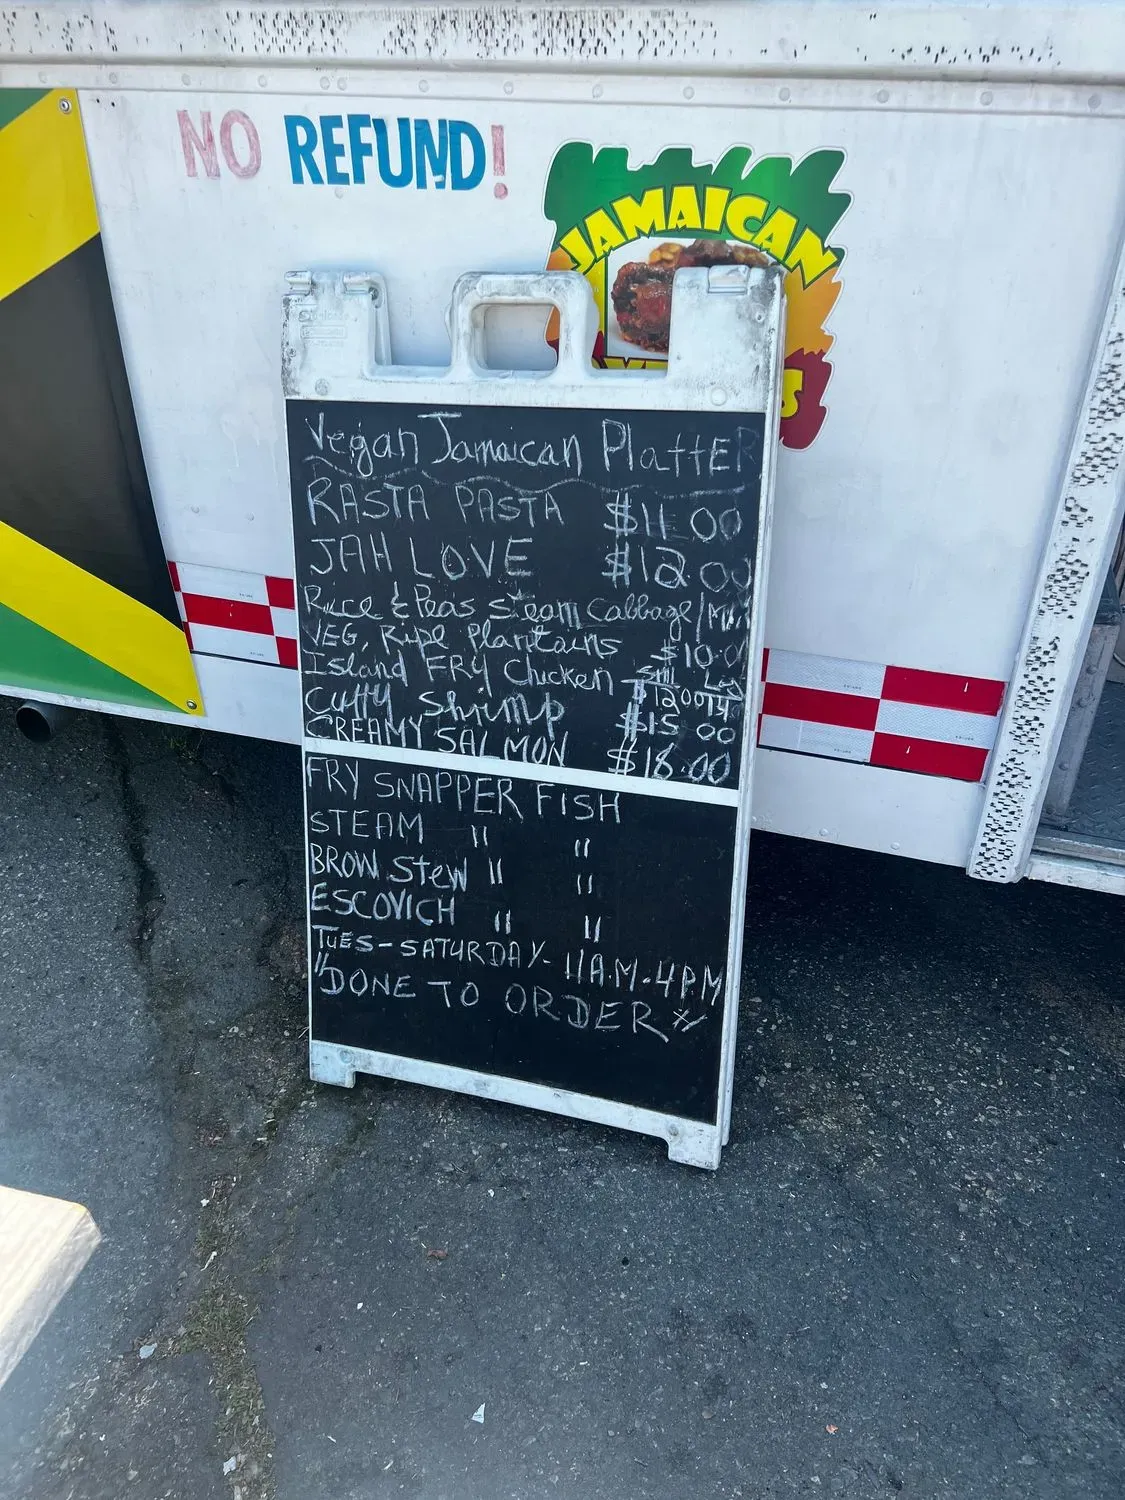 NO REFUND!
JAMAICAN
Vegan Jamaican PlattER
RASTA PASTA $11.00
JAH LOVE $12.00
Rice & Peas steam cabbage/Mix
VEG, Ripe Plantains $10.00
Island FRY Chicken Sml
$12.00
Curry Shrimp $15.00
CREAMY SALMON $18.00
FRY SNAPPER FISH
STEAM " "
BROW Stew " "
ESCOVICH " "
TUES-SATURDAY- 11A.M-4PM
"DONE TO ORDER"